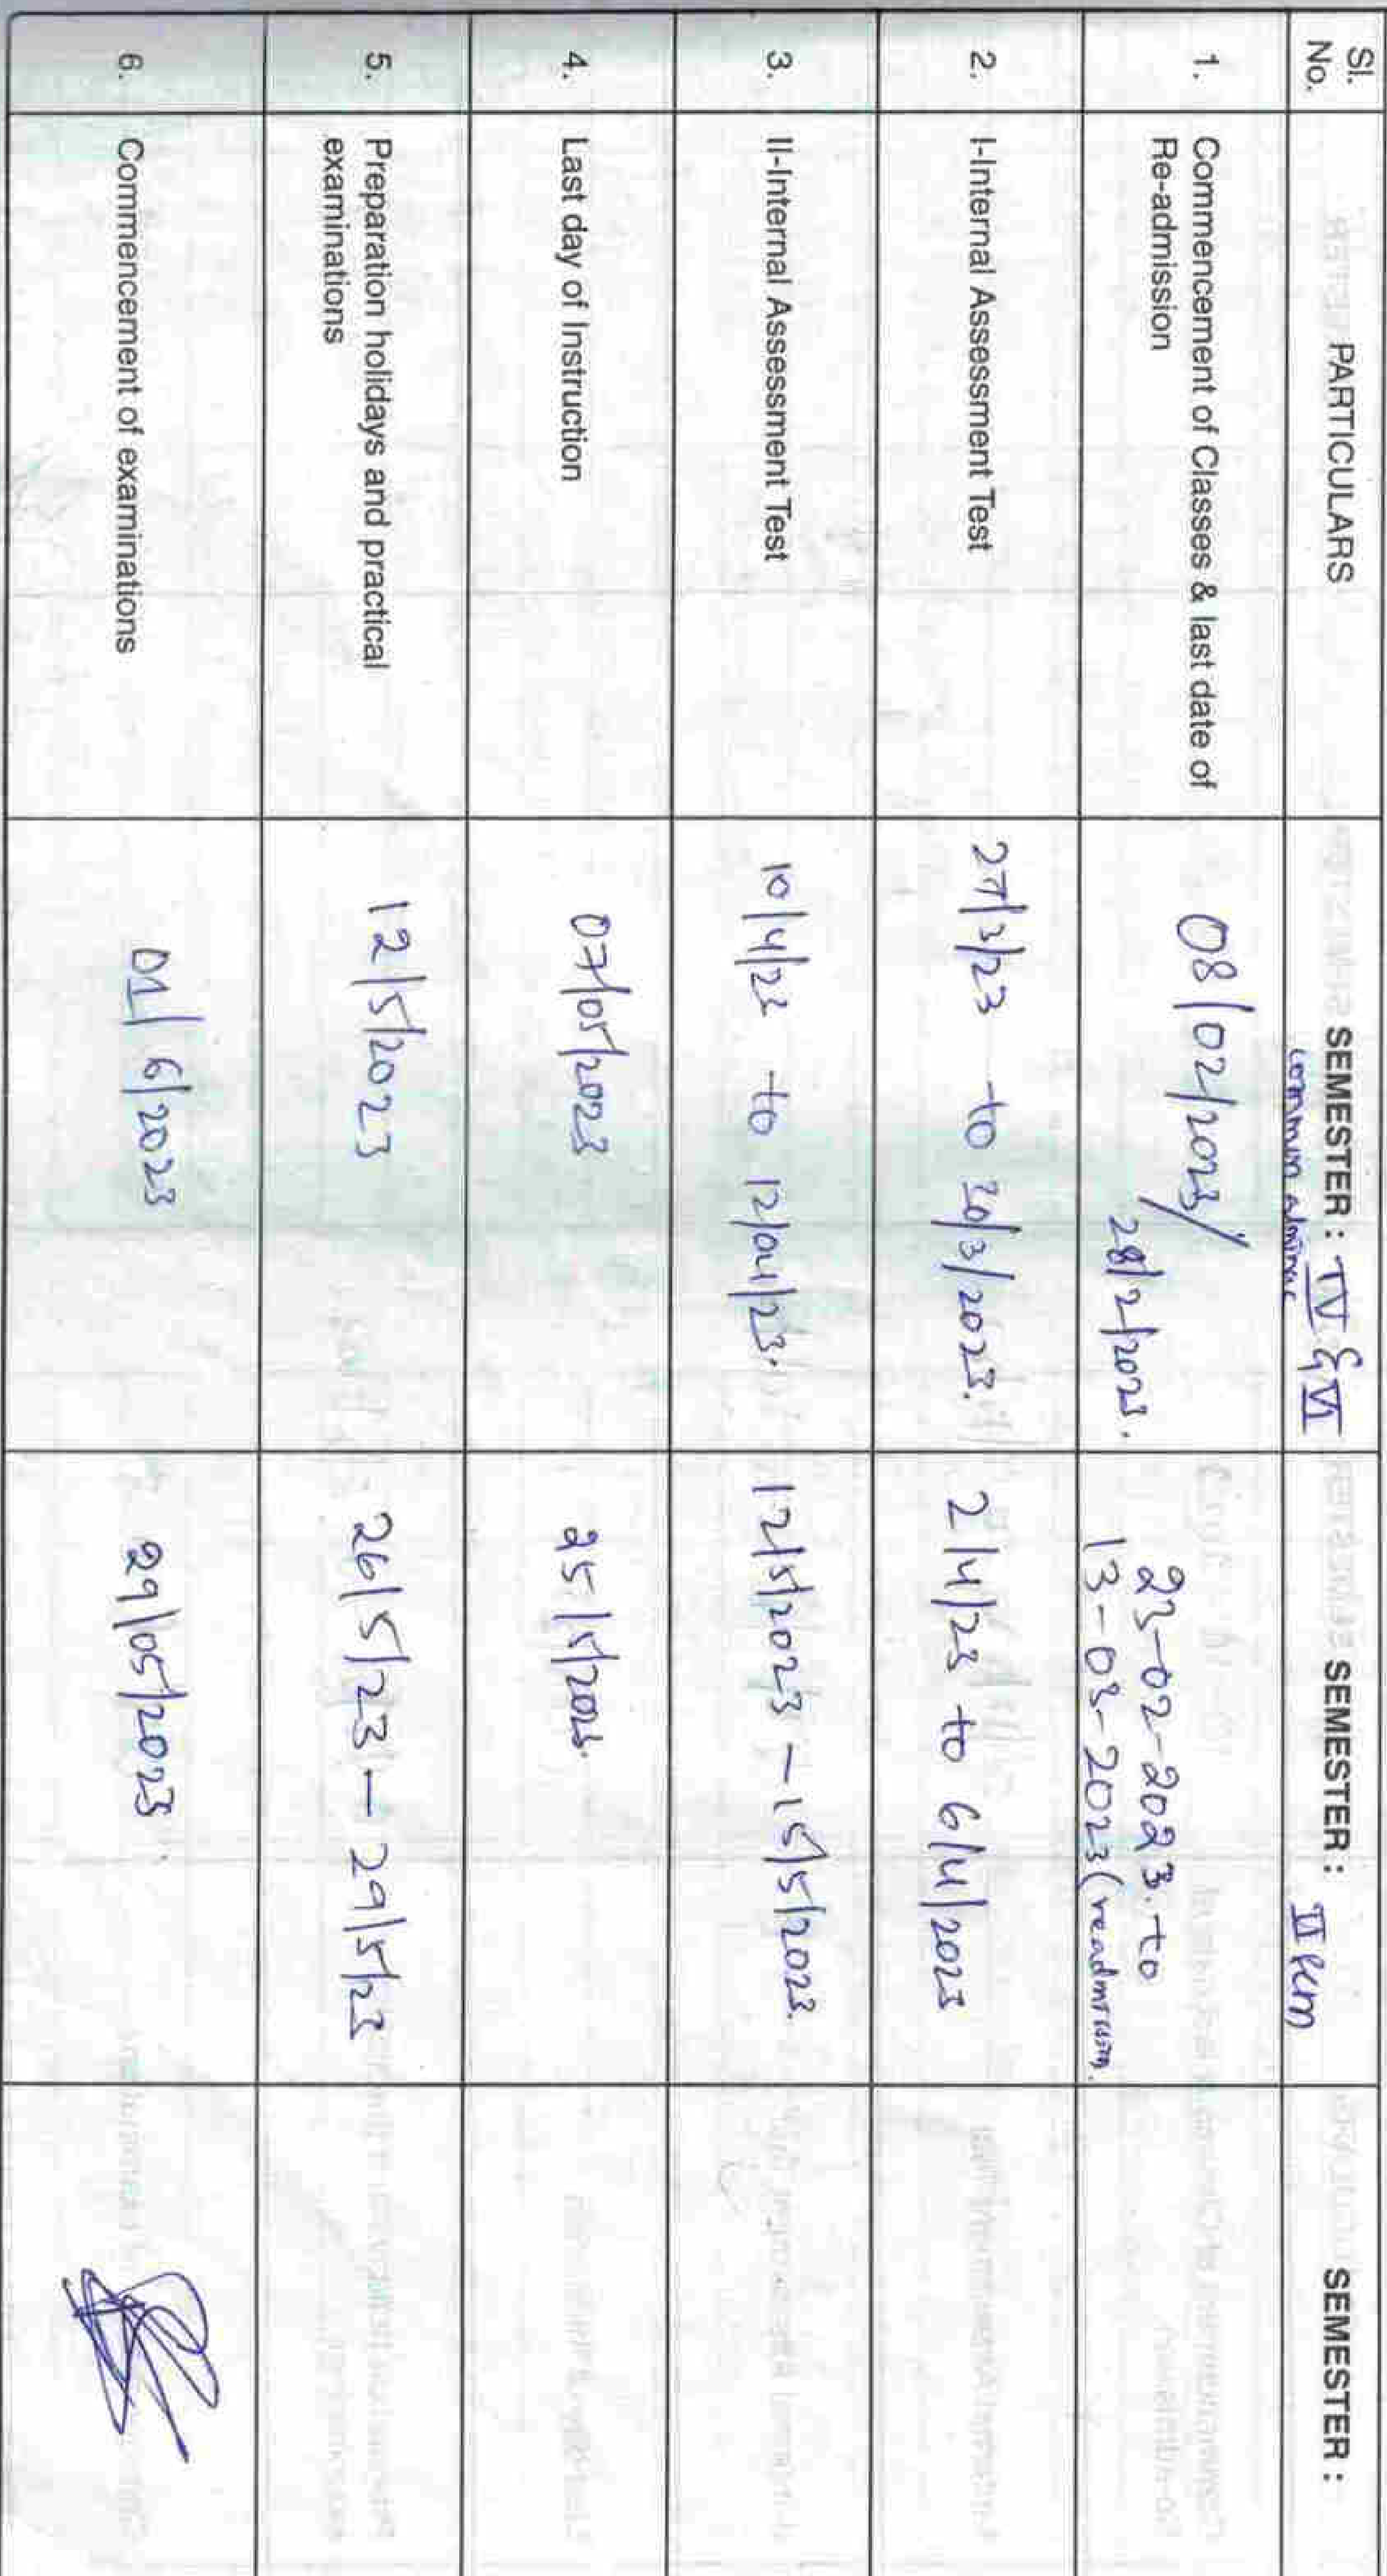 Sl. No. PARTICULARS SEMESTER : IV & VI SEMESTER : II Sem SEMESTER :
common
1. Commencement of Classes & last date of 08/02/2023/ 23-02-2023. to
Re-admission 28/2/2023. 13-03-2023 (readmission.
2. I-Internal Assessment Test 27/3/23 to 30/3/2023. 2/4/23 to 6/4/2023
3. II-Internal Assessment Test 10/4/23 to 12/04/23. 12/5/2023 – 15/5/2023.
4. Last day of Instruction 07/05/2023 25/5/2023.
5. Preparation holidays and practical 12/5/2023 26/5/23 – 29/5/23
examinations
6. Commencement of examinations 01/6/2023 29/05/2023